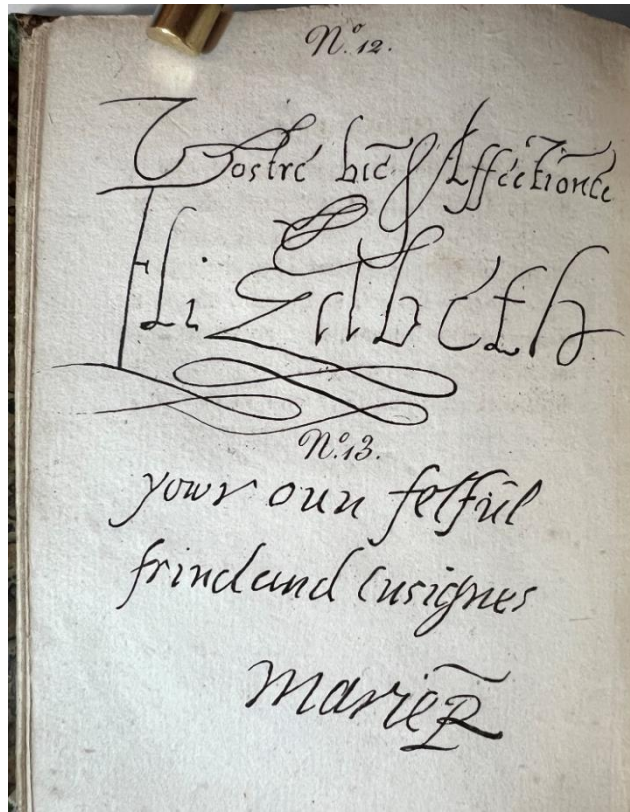 N.º 12.
Vostre biē Affectionée
Elizabeth
N.º 13.
yowr oun feṫful
frind and cusignes
Marie R